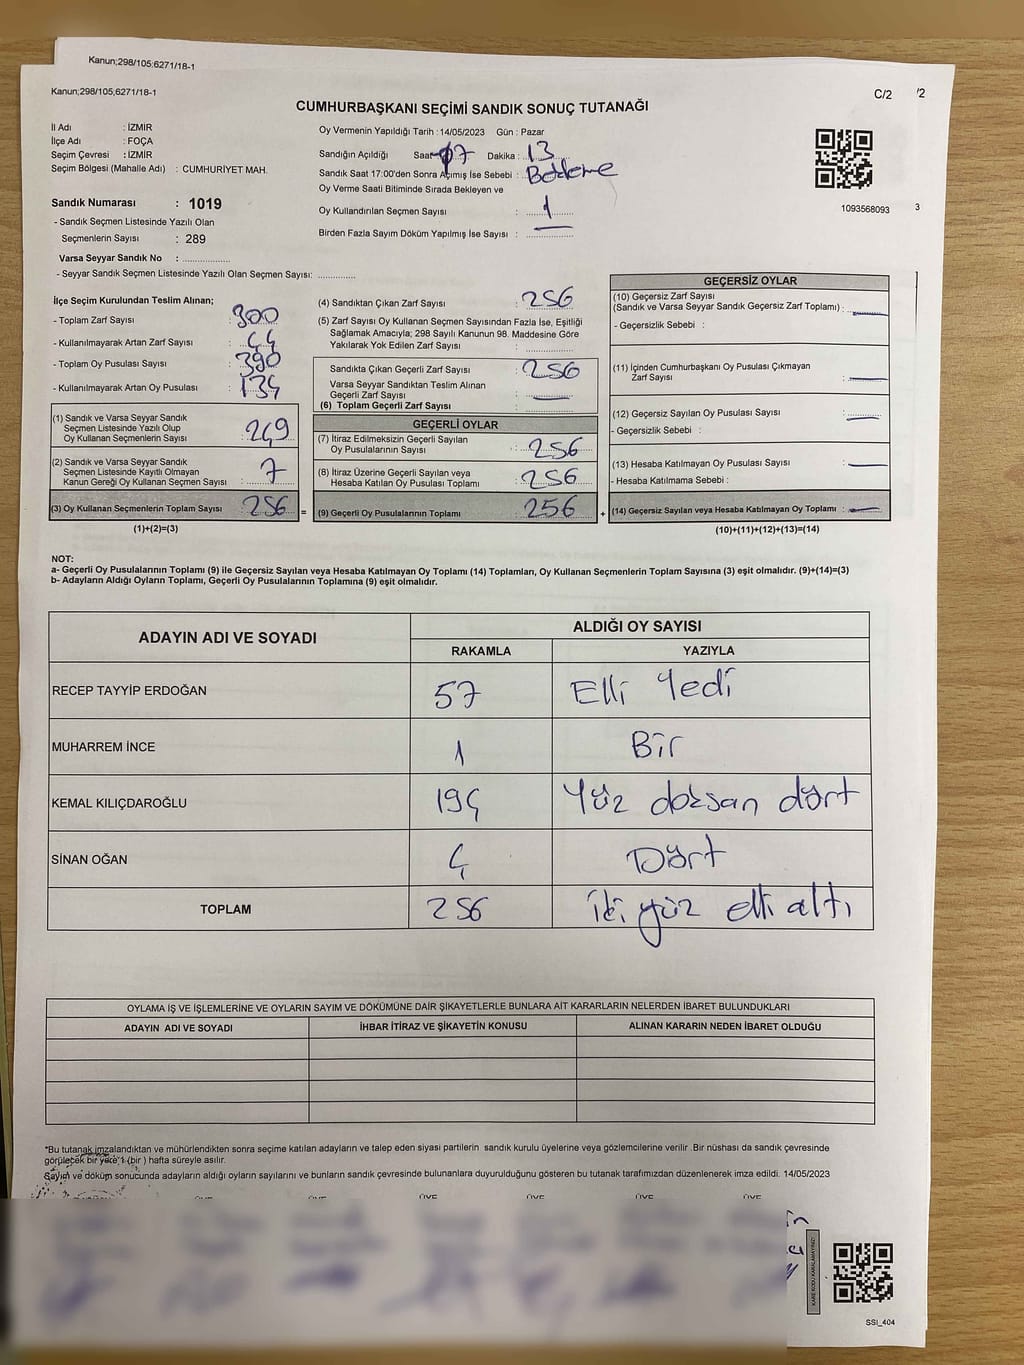 Kanun;298/105;6271/18-1
Kanun;298/105,6271/18-1
C/2
'/2
CUMHURBAŞKANI SEÇİMİ SANDIK SONUÇ TUTANAĞI
İl Adı : İZMİR
İlçe Adı : FOÇA
Seçim Çevresi : İZMİR
Seçim Bölgesi (Mahalle Adı) : CUMHURİYET MAH.
Oy Vermenin Yapıldığı Tarih : 14/05/2023 Gün : Pazar
Sandığın Açıldığı Saat 17 Dakika : 13
Sandık Saat 17:00'den Sonra Açımış İse Sebebi : Bekleme
Oy Verme Saati Bitiminde Sırada Bekleyen ve
Oy Kullandırılan Seçmen Sayısı : 1
Birden Fazla Sayım Döküm Yapılmış İse Sayısı : —
1093568093
3
Sandık Numarası : 1019
- Sandık Seçmen Listesinde Yazılı Olan
Seçmenlerin Sayısı : 289
Varsa Seyyar Sandık No :
- Seyyar Sandık Seçmen Listesinde Yazılı Olan Seçmen Sayısı:
İlçe Seçim Kurulundan Teslim Alınan;
- Toplam Zarf Sayısı : 300
- Kullanılmayarak Artan Zarf Sayısı : 44
- Toplam Oy Pusulası Sayısı : 390
- Kullanılmayarak Artan Oy Pusulası : 134
(1) Sandık ve Varsa Seyyar Sandık
Seçmen Listesinde Yazılı Olup
Oy Kullanan Seçmenlerin Sayısı : 249
(2) Sandık ve Varsa Seyyar Sandık
Seçmen Listesinde Kayıtlı Olmayan
Kanun Gereği Oy Kullanan Seçmen Sayısı : 7
(3) Oy Kullanan Seçmenlerin Toplam Sayısı : 256
(1)+(2)=(3)
=
(4) Sandıktan Çıkan Zarf Sayısı : 256
(5) Zarf Sayısı Oy Kullanan Seçmen Sayısından Fazla İse, Eşitliği
Sağlamak Amacıyla; 298 Sayılı Kanunun 98. Maddesine Göre
Yakılarak Yok Edilen Zarf Sayısı :
Sandıkta Çıkan Geçerli Zarf Sayısı : 256
Varsa Seyyar Sandıktan Teslim Alınan
Geçerli Zarf Sayısı : —
(6) Toplam Geçerli Zarf Sayısı :
GEÇERLİ OYLAR
(7) İtiraz Edilmeksizin Geçerli Sayılan
Oy Pusulalarının Sayısı : 256
(8) İtiraz Üzerine Geçerli Sayılan veya
Hesaba Katılan Oy Pusulası Toplamı : 256
(9) Geçerli Oy Pusulalarının Toplamı : 256
+
GEÇERSİZ OYLAR
(10) Geçersiz Zarf Sayısı
(Sandık ve Varsa Seyyar Sandık Geçersiz Zarf Toplamı) : —
- Geçersizlik Sebebi :
(11) İçinden Cumhurbaşkanı Oy Pusulası Çıkmayan
Zarf Sayısı : —
(12) Geçersiz Sayılan Oy Pusulası Sayısı : —
- Geçersizlik Sebebi :
(13) Hesaba Katılmayan Oy Pusulası Sayısı : —
- Hesaba Katılmama Sebebi :
(14) Geçersiz Sayılan veya Hesaba Katılmayan Oy Toplamı : —
(10)+(11)+(12)+(13)=(14)
NOT:
a- Geçerli Oy Pusulalarının Toplamı (9) ile Geçersiz Sayılan veya Hesaba Katılmayan Oy Toplamı (14) Toplamları, Oy Kullanan Seçmenlerin Toplam Sayısına (3) eşit olmalıdır. (9)+(14)=(3)
b- Adayların Aldığı Oyların Toplamı, Geçerli Oy Pusulalarının Toplamına (9) eşit olmalıdır.
ADAYIN ADI VE SOYADI ALDIĞI OY SAYISI
RAKAMLA YAZIYLA
RECEP TAYYİP ERDOĞAN 57 Elli Yedi
MUHARREM İNCE 1 Bir
KEMAL KILIÇDAROĞLU 194 Yüz doksan dört
SİNAN OĞAN 4 Dört
TOPLAM 256 iki yüz elli altı
OYLAMA İŞ VE İŞLEMLERİNE VE OYLARIN SAYIM VE DÖKÜMÜNE DAİR ŞİKAYETLERLE BUNLARA AİT KARARLARIN NELERDEN İBARET BULUNDUKLARI
ADAYIN ADI VE SOYADI İHBAR İTİRAZ VE ŞİKAYETİN KONUSU ALINAN KARARIN NEDEN İBARET OLDUĞU
*Bu tutanak imzalandıktan ve mühürlendikten sonra seçime katılan adayların ve talep eden siyasi partilerin sandık kurulu üyelerine veya gözlemcilerine verilir .Bir nüshası da sandık çevresinde
görülecek bir yere 1 (bir ) hafta süreyle asılır.
Sayım ve döküm sonucunda adayların aldığı oyların sayılarını ve bunların sandık çevresinde bulunanlara duyurulduğunu gösteren bu tutanak tarafımızdan düzenlenerek imza edildi. 14/05/2023
ÜYE ÜYE ÜYE ÜYE ÜYE ÜYE
KARE KODU KARALAMAYINIZ!
SSI_404